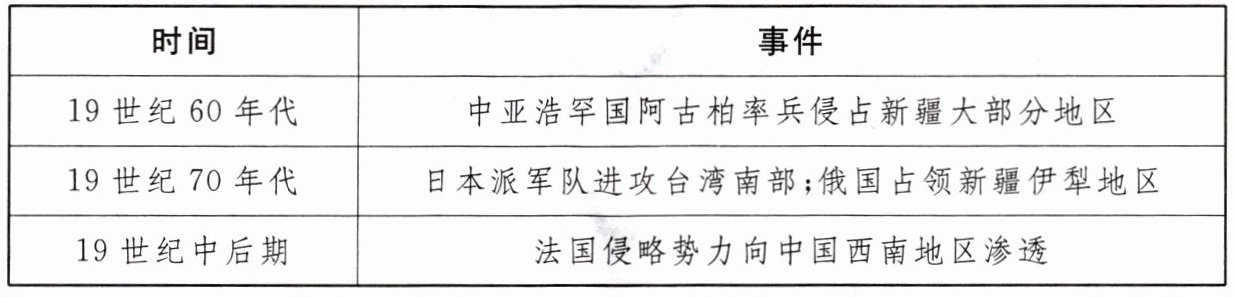 时间 事件
19世纪60年代 中亚浩罕国阿古柏率兵侵占新疆大部分地区
19世纪70年代 日本派军队进攻台湾南部;俄国占领新疆伊犁地区
19世纪中后期 法国侵略势力向中国西南地区渗透